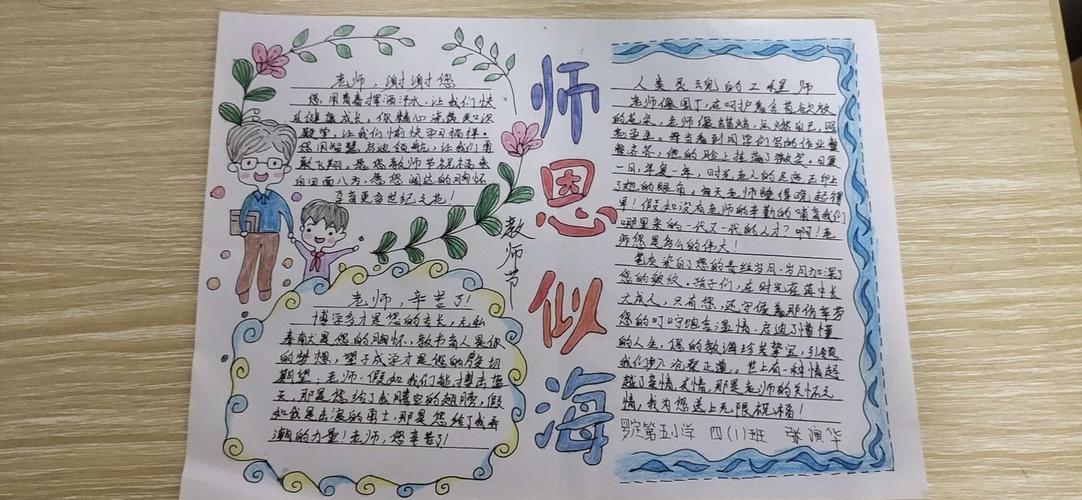 老师,谢谢您
您,用青春挥洒汗水,让我们快
乐健康成长,你精心浇灌知识
殿堂,让我们愉快学习徜徉。
您用智慧启迪领航,让我们勇
敢飞翔,愿您教师节祝福来
自四面八方,愿您阔达的胸怀
孕育更多世纪之花!
老师,辛苦了!
博学多才是您的专长,无私
奉献是您的胸怀,教书育人是你
的梦想,望子成学才是您的殷切
期望;老师,假如我们能搏击蓝
天,那是您给了我腾空的翅膀,假
如我是击浪的勇士,那是您给了我弄
潮的力量!老师,您辛苦了!
教师节
师恩似海
人类灵魂的工程师
老师像园丁,在呵护着含苞欲放
的花朵,老师像蜡烛,点燃自己,照
亮学生,每当看到同学们写的作业整
整齐齐,他的脸上挂满了微笑。日复
一日,年复一年,时光老人的足迹已印上
了她的眼角,每天老师睡得晚,起得
早!假如没有老师的辛勤的哺育我们
哪里来的一代又一代的人才?啊!老
师您是多么的伟大!
笔灰染白了您的青丝岁月,岁月加深了
您的皱纹,孩子们,在时光荏苒中长
大成人,只有您,还守候着那份辛劳
您的叮咛饱含温情,启迪了懵懂
的人生,您的教诲珍贵挚宝,引领
我们步入沧桑正道,世上有一种情超
越了亲情、友情,那是老师的关怀之
情,我为您送上无限祝福!
罗定第五小学 四(1)班 张演华